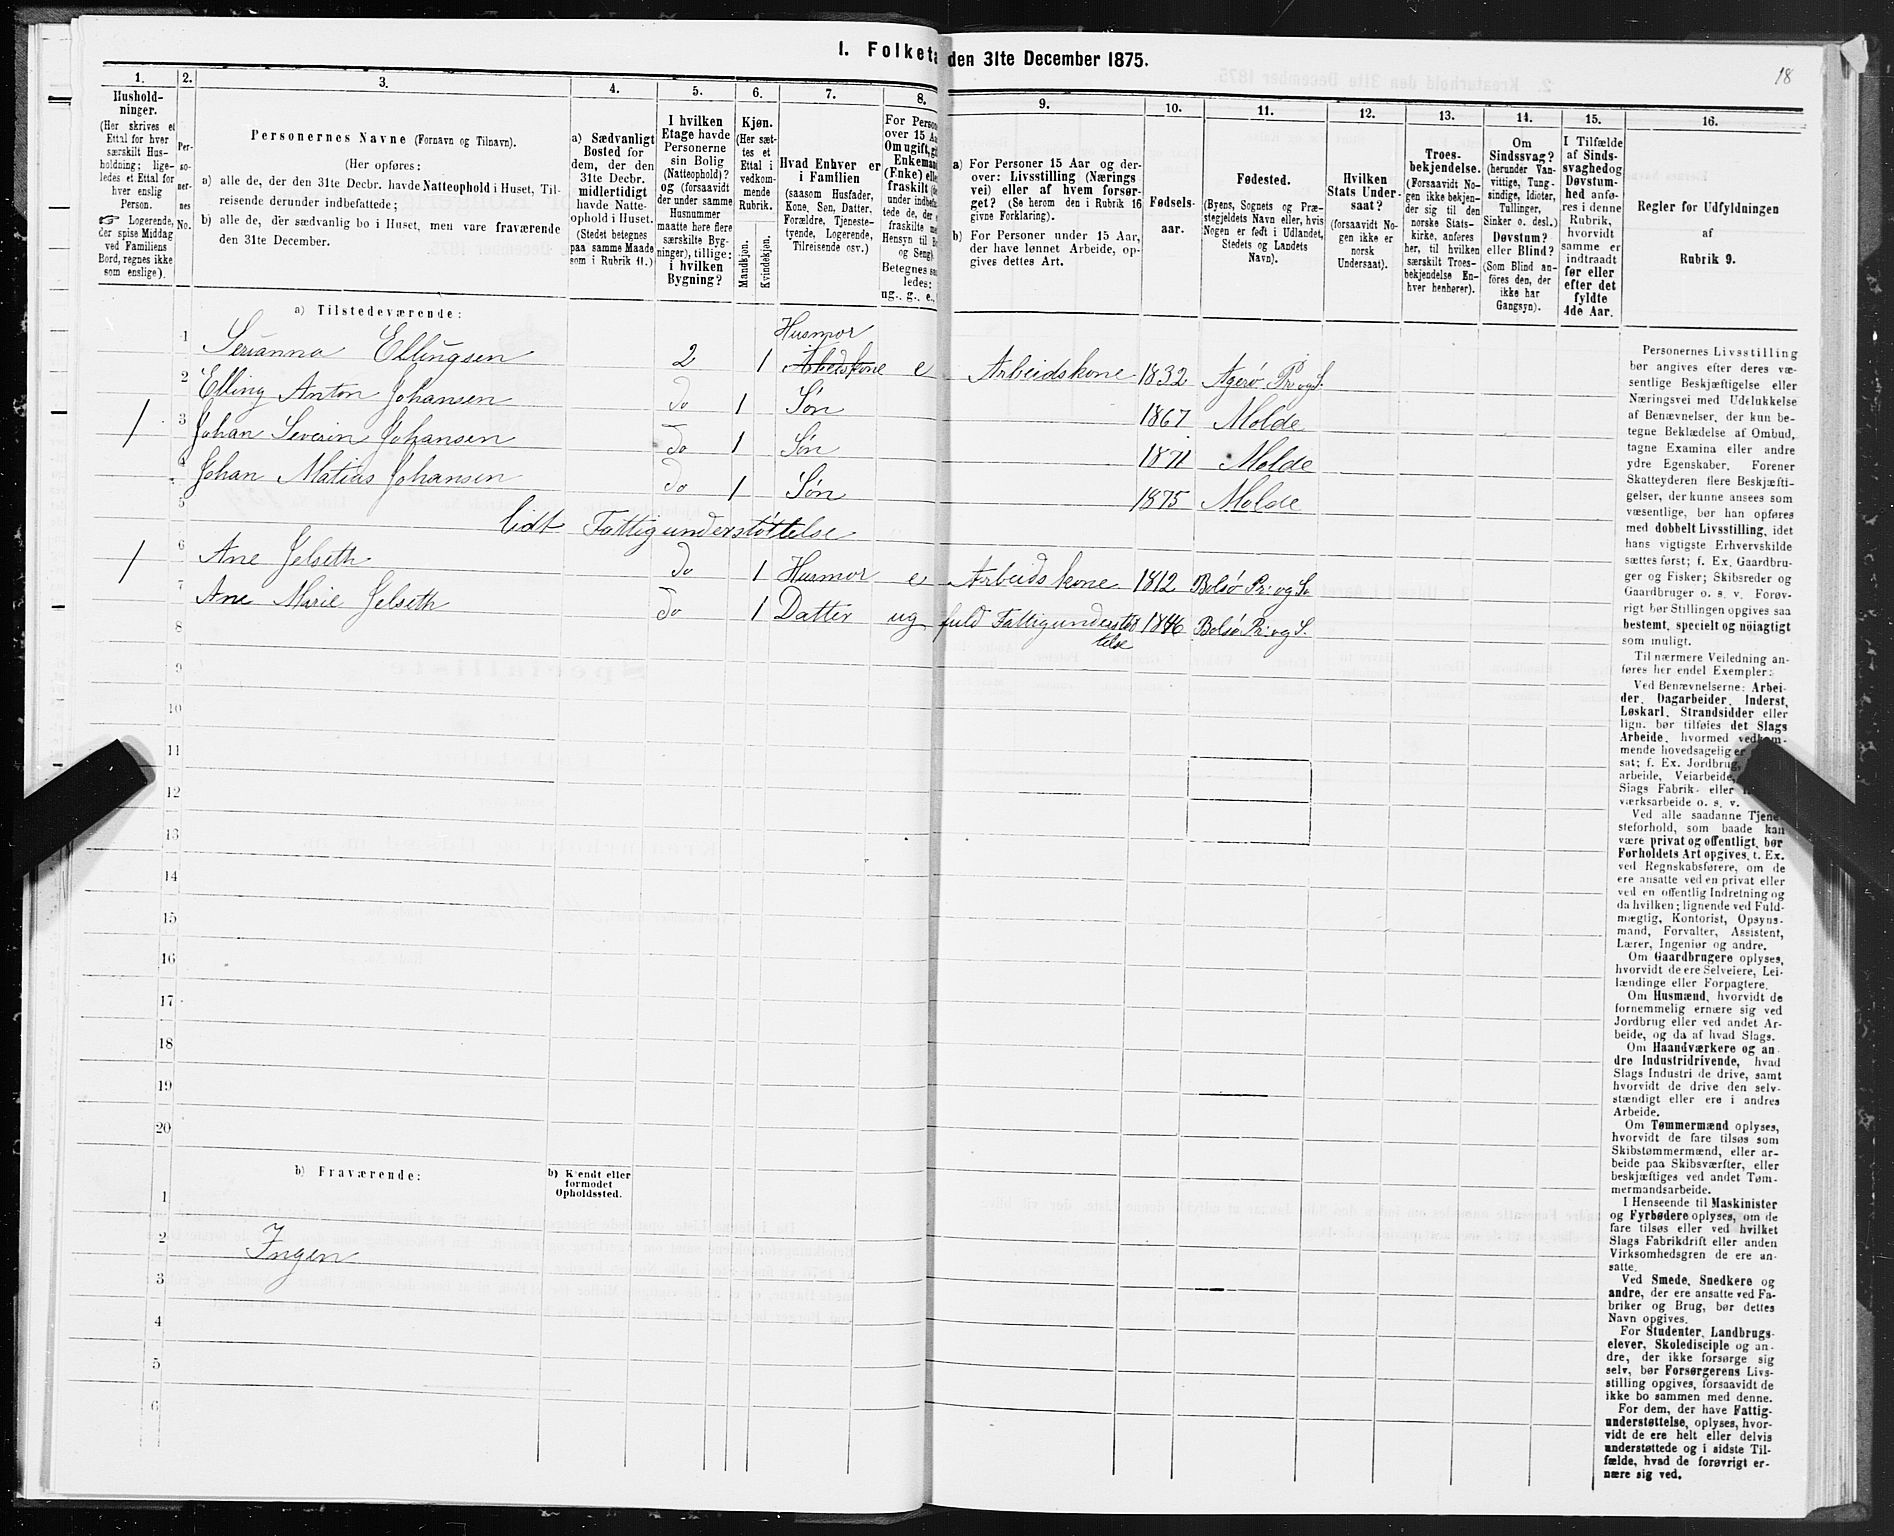 I. Folketæ
den 31te December 1875.
18
1.
Hushold-
ninger.
(Her skrives et
Ettal for hver
særskilt Hus-
holdning; lige-
ledes et Ettal for
hver enslig
Person.
☞ Logerende,
der spise Middag
ved Familiens
Bord, regnes ikke
som enslige).
2.
Per-
so-
ner-
nes
No.
3.
Personernes Navne (Fornavn og Tilnavn).
(Her opføres:
a) alle de, der den 31te Decbr. havde Natteophold i Huset, Til-
reisende derunder indbefattede;
b) alle de, der sædvanlig bo i Huset, men vare fraværende
den 31te December.
4.
a) Sædvanligt
Bosted for
dem, der den
31te Decbr.
midlertidigt
havde Natte-
ophold i Huset.
(Stedet betegnes
paa samme Maade
som i Rubrik 11.)
5.
I hvilken
Etage havde
Personerne
sin Bolig
(Natteophold)?
og (forsaavidt
der under samme
Husnummer
maatte høre flere
særskilte Byg-
ninger), tillige:
i hvilken
Bygning?
6.
Kjøn.
(Her sæt-
tes et
Ettal i
vedkom-
mende
Rubrik.
Mandkjøn.
Kvindekjøn.
7.
Hvad Enhver er
i Familien
(saasom Husfader,
Kone, Søn, Datter,
Forældre, Tjeneste-
tyende, Logerende,
Tilreisende osv.)
8.
For Person
over 15 Aa
Om ugift, gi
Enkeman
(Enke) elle
fraskilt (de
under indbefa
tede de, der e
fraskilte me
Hensyn til Bo
og Seng).
Betegnes saa
ledes:
ug., g., e.,
9.
a) For Personer 15 Aar og der-
over: Livsstilling (Nærings
vei) eller af hvem forsør-
get? (Se herom den i Rubrik 16
givne Forklaring).
b) For Personer under 15 Aar,
der have lønnet Arbeide, op-
gives dettes Art.
10.
Fødsels-
aar.
11.
Fødested.
(Byens, Sognets og Præ-
stegjeldets Navn eller, hvis
Nogen er født i Udlandet,
Stedets og Landets
Navn).
12.
Hvilken
Stats Under-
saat?
(forsaavidt No-
gen ikke er
norsk
Undersaat).
13.
Troes-
bekjendelse.
(Forsaavidt No-
gen ikke bekjen-
der sig til den
norske Stats-
kirke, anføres
her, til hvilken
særskilt Troes-
bekjendelse En-
hver henhører).
14.
Om
Sindssvag?
(herunder Van-
vittige, Tung-
sindige, Idioter,
Tullinger,
Sinker o. desl.)
Døvstum?
eller Blind?
(Som Blind an-
føres den, der
ikke har
Gangsyn).
15.
I Tilfælde
af Sinds-
svaghed og
Døvstum-
hed anfø-
res i denne
Rubrik,
hvorvidt
samme er
indtraadt
før eller
efter det
fyldte
4de Aar.
16.
Regler for Udfyldningen
af
Rubrik 9.
a) Tilstedeværende:
1 Serianna Ellingsen 2 1 Husmor Arbeidskone e Arbeidskone 1832 Agerø Pr. og S.
2 Elling Anton Johansen do 1 Søn 1867 Molde
1 3 Johan Severin Johansen do 1 Søn 1871 Molde
4 Johan Matias Johansen do 1 Søn 1875 Molde
5 lidt Fattigunderstøttelse
1 6 Ane Jelseth do 1 Husmor e Arbeidskone 1812 Bolsø Pr: og S.
7 Ane Marie Jelseth do 1 Datter ug fuld Fattigunderstøt 1846 Bolsø Pr: og S.
telse
8
9
10
11
12
13
14
15
16
17
18
19
20
b) Fraværende:
b) Kjendt eller
formodet
Opholdssted.
1
2 Ingen
3
4
5
6
Personernes Livsstilling
bør angives efter deres væ-
sentlige Beskjæftigelse eller
Næringsvei med Udelukkelse
af Benævnelser, der kun be-
tegne Beklædelse af Ombud,
tagne Examina eller andre
ydre Egenskaber. Forener
Skatteyderen flere Beskjæfti-
gelser, der kunne ansees som
væsentlige, bør han opføres
med dobbelt Livsstilling, idet
hans vigtigste Erhvervskilde
sættes først; f. Ex. Gaardbru-
ger og Fisker; Skibsreder og
Gaardbruger o. s. v. Forøv-
rigt bør Stillingen opgives saa
bestemt, specielt og nøiagtigt
som muligt.
Til nærmere Veiledning an-
føres her endel Exempler:
Ved Benævnelserne: Arbei-
der, Dagarbeider, Inderst,
Løskarl, Strandsidder eller
lign. bør tilføies det Slags
Arbeide, hvormed vedkom-
mende hovedsagelig er
sat; f. Ex. Jordbrug,
arbeide, Veiarbeide,
Slags Fabrik- eller
værksarbeide o. s. v.
Ved alle saadanne Tjene-
steforhold, som baade kan
være privat og offentligt, bør
Forholdets Art opgives, t. Ex.
ved Regnskabsførere, om de
ere ansatte ved en privat eller
ved en offentlig Indretning og
da hvilken; lignende ved Fuld-
mægtig, Kontorist, Opsyns-
mand, Forvalter, Assistent,
Lærer, Ingeniør og andre.
Om Gaardbrugere oplyses,
hvorvidt de ere Selveiere, Lei-
lændinge eller Forpagtere.
Om Husmænd, hvorvidt de
fornemmelig ernære sig ved
Jordbrug eller ved andet Ar-
beide, og da af hvad Slags.
Om Haandværkere og an
dre Industridrivende, hvad
Slags Industri de drive, samt
hvorvidt de drive den selv-
stændigt eller ere i andres
Arbeide.
Om Tømmermænd oplyses,
hvorvidt de fare tilsøs som
Skibstømmermænd, eller ar-
beide paa Skibsværfter, eller
beskjæftiges ved andet Tøm-
mermandsarbeide.
I Henseende til Maskinister
og Fyrbødere oplyses, om de
fare tilsøs eller ved hvilket
Slags Fabrikdrift eller anden
Virksomhedsgren de ere an-
satte.
Ved Smede, Snedkere og
andre, der ere ansatte ved Fa-
briker og Brug, bør dettes
Navn opgives.
For Studenter, Landbrugs-
elever, Skoledisciple og an-
dre, der ikke forsørge sig
selv, bør Forsørgerens Livs-
stilling opgives, forsaavidt de
ikke bo sammen med denne.
For dem, der have Fattig-
understøttelse, oplyses, hvor-
vidt de ere helt eller delvis
understøttede og i sidste Til-
fælde, hvad de forøvrigt er-
nære sig ved.